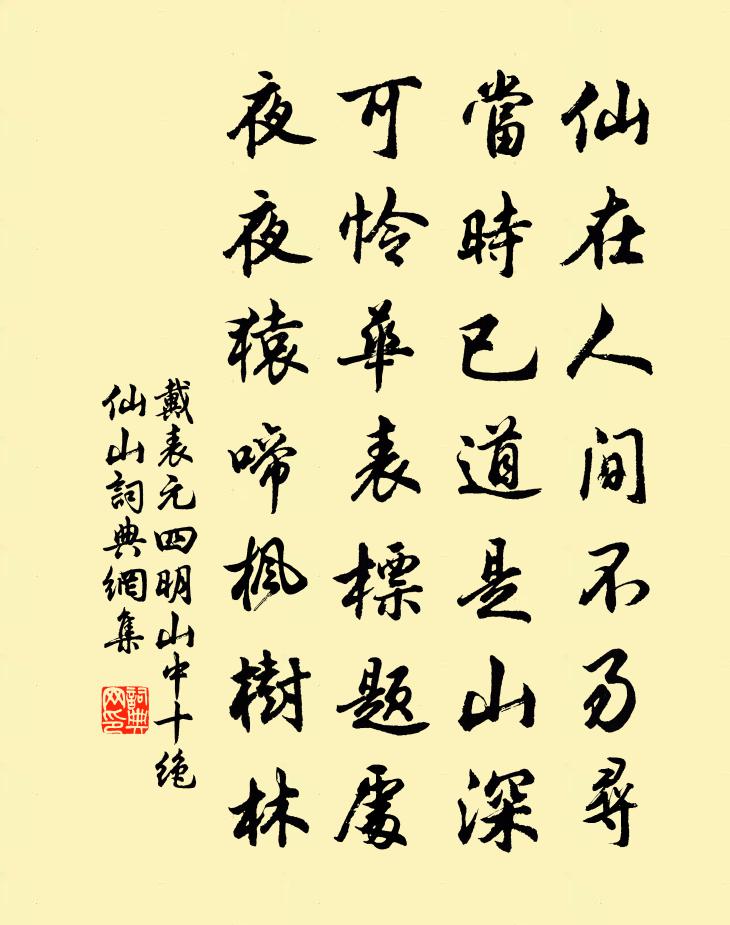 仙在人間不易尋
當時已道是山深
可憐華表標題處
夜夜猿啼楓樹林
戴表元四明山中十絶
仙山詞典網集
詞典网印